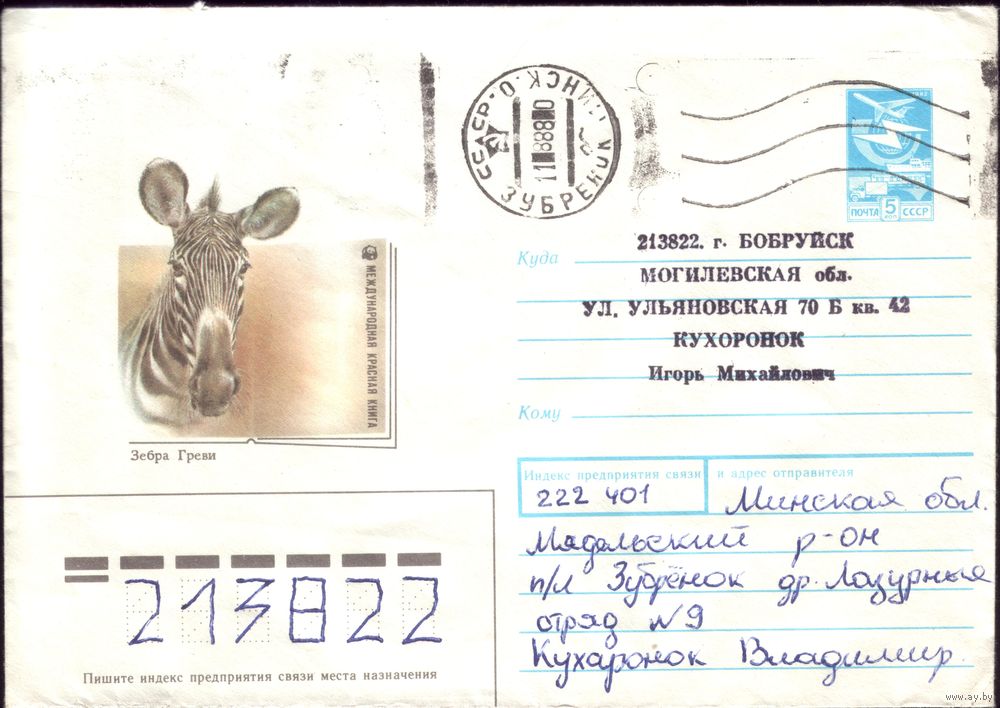 СССР · МИНСК. О.
11 8 88
ЗУБРЕНОК
1982
ПОЧТА 5 коп СССР
Куда
213822. г. БОБРУЙСК
МОГИЛЕВСКАЯ обл.
УЛ. УЛЬЯНОВСКАЯ 70 Б кв. 42
КУХОРОНОК
Игорь Михайлович
Кому
МЕЖДУНАРОДНАЯ КРАСНАЯ КНИГА
Зебра Греви
Индекс предприятия связи и адрес отправителя
222 401 Минская обл.
Мядельский р-он
п/л Зубрёнок др. Лазурная
отряд №9
Кухаронок Владимир
213822
Пишите индекс предприятия связи места назначения
www.ay.by